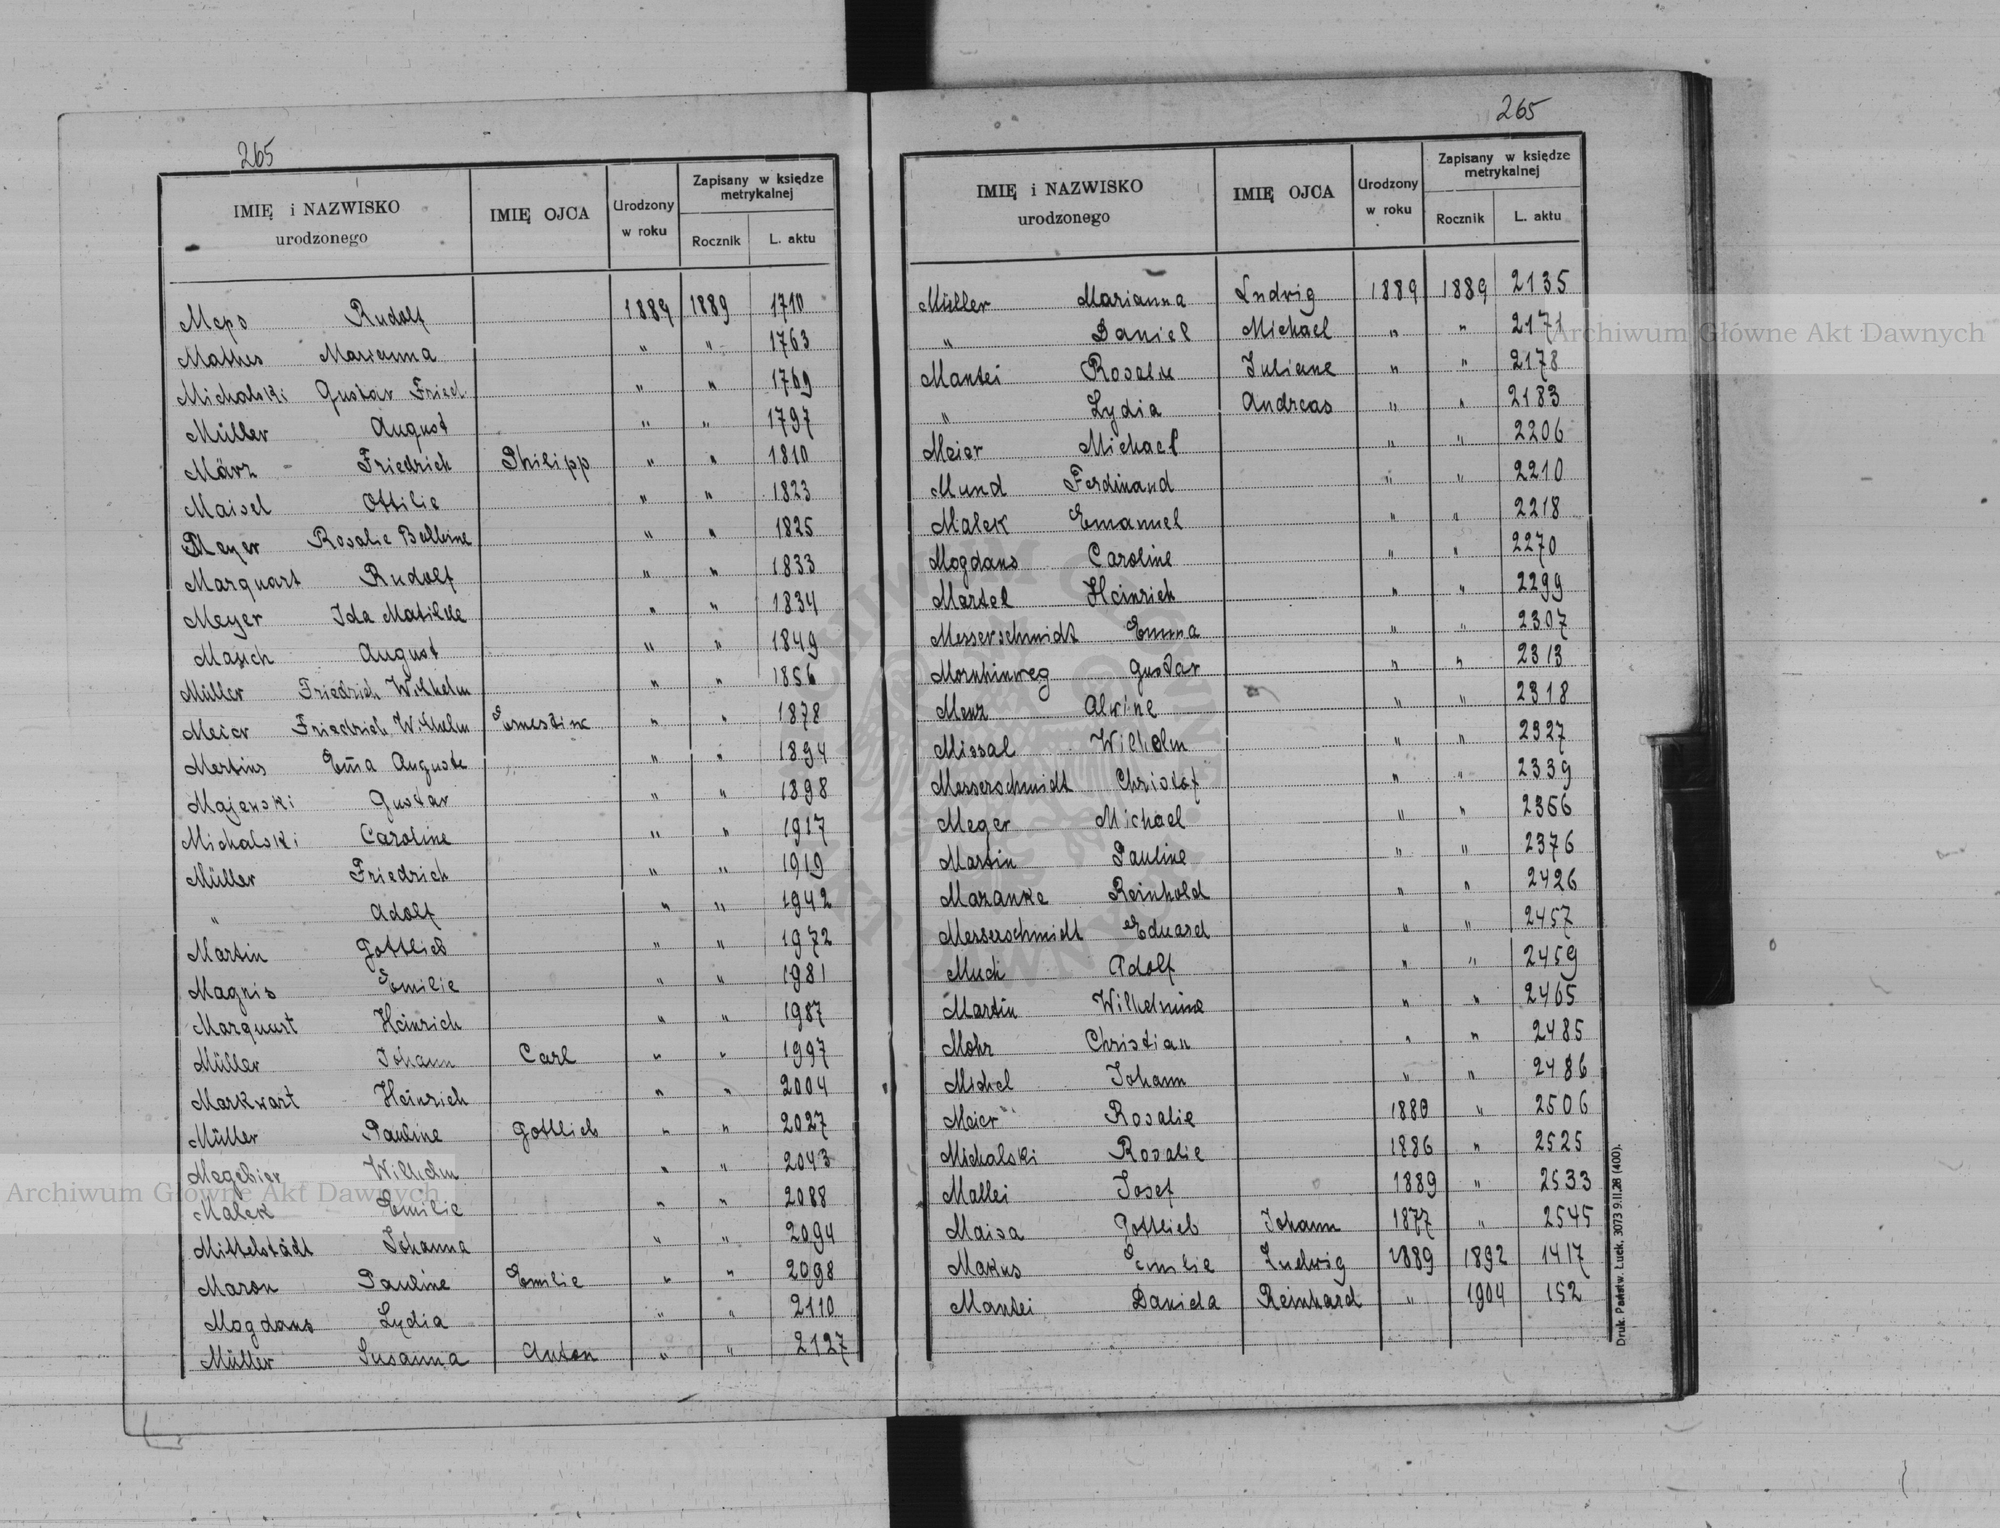 265
IMIĘ i NAZWISKO urodzonego IMIĘ OJCA Urodzony w roku Zapisany w księdze metrykalnej Rocznik L. aktu
Meps Rudolf 1889 1889 1710
Mathes Marianna " " 1763
Michalski Gustav Fried " " 1769
Müller August " " 1797
März Friedrich Philipp " " 1810
Maisel Ottilie " " 1823
Meyer Rosalie Balbine " " 1825
Marquart Rudolf " " 1833
Meyer Ida Matilde " " 1834
Masich August " " 1849
Müller Friedrich Wilhelm " " 1856
Meier Friedrich Wilhelm Ernestine " " 1878
Mertins Em̄a Auguste " " 1894
Majewski Gustav " " 1898
Michalski Caroline " " 1917
Müller Friedrich " " 1919
" Adolf " " 1942
Martin Gottlieb " " 1972
Magnis Emilie " " 1981
Marquart Heinrich " " 1987
Müller Johann Carl " " 1997
Markwart Heinrich " " 2004
Müller Pauline Gottlieb " " 2027
Megebier Wilhelm " " 2043
Malek Emilie " " 2088
Mittelstädt Johanna " " 2094
Maron Pauline Emilie " " 2098
Mogdans Lydia " " 2110
Müller Susanna Anton " " 2127
265
IMIĘ i NAZWISKO urodzonego IMIĘ OJCA Urodzony w roku Zapisany w księdze metrykalnej Rocznik L. aktu
Müller Marianna Ludvig 1889 1889 2135
" Daniel Michael " " 2171
Mantei Rosalie Juliane " " 2178
" Lydia Andreas " " 2183
Meier Michael " " 2206
Mund Ferdinand " " 2210
Malek Emanuel " " 2218
Mogdans Caroline " " 2270
Martel Heinrich " " 2299
Messerschmidt Emma " " 2307
Mornhinweg Gustav " " 2313
Menz Alwine " " 2318
Missal Wilhelm " " 2327
Messerschmidt Christof " " 2339
Meger Michael " " 2356
Martin Pauline " " 2376
Maranke Reinhold " " 2426
Messerschmidt Eduard " " 2457
Much Adolf " " 2459
Martin Wilhelmine " " 2465
Mohr Christian " " 2485
Michel Johann " " 2486
Meier Rosalie 1880 " 2506
Michalski Rosalie 1886 " 2525
Mallei Josef 1889 " 2533
Maisa Gottlieb Johann 1877 " 2545
Makus Emilie Ludwig 1889 1892 1417
Mantei Daniela Reinhard " 1904 152
Druk. Państw. Łuck, 3073 9.II.28 (400).
Archiwum Główne Akt Dawnych
Archiwum Główne Akt Dawnych